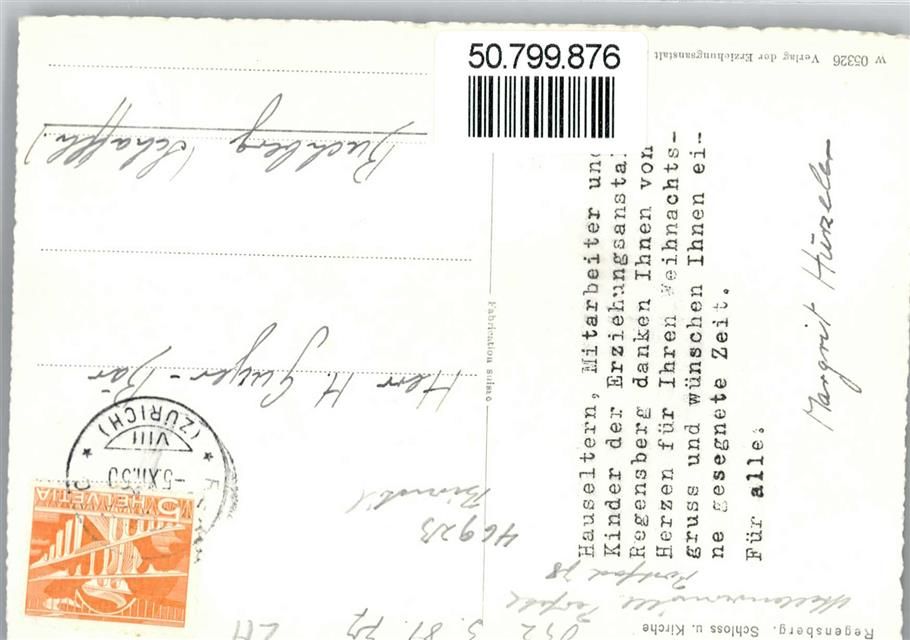 50.799.876
W 05326 Verlag der Erziehungsanstalt
Regensberg. Schloss u. Kirche
Fabrication suisse
Hauseltern, Mitarbeiter und
Kinder der Erziehungsanstal
Regensberg danken Ihnen von
Herzen für Ihren Weihnachts-
gruss und wünschen Ihnen ei-
ne gesegnete Zeit.
Für alle:
Margrit Hürzeler
Herr H. Gujer-Bär
Buchberg (Schaffh.)
(ZÜRICH)
VIII
-5.XII.50
HELVETIA
5